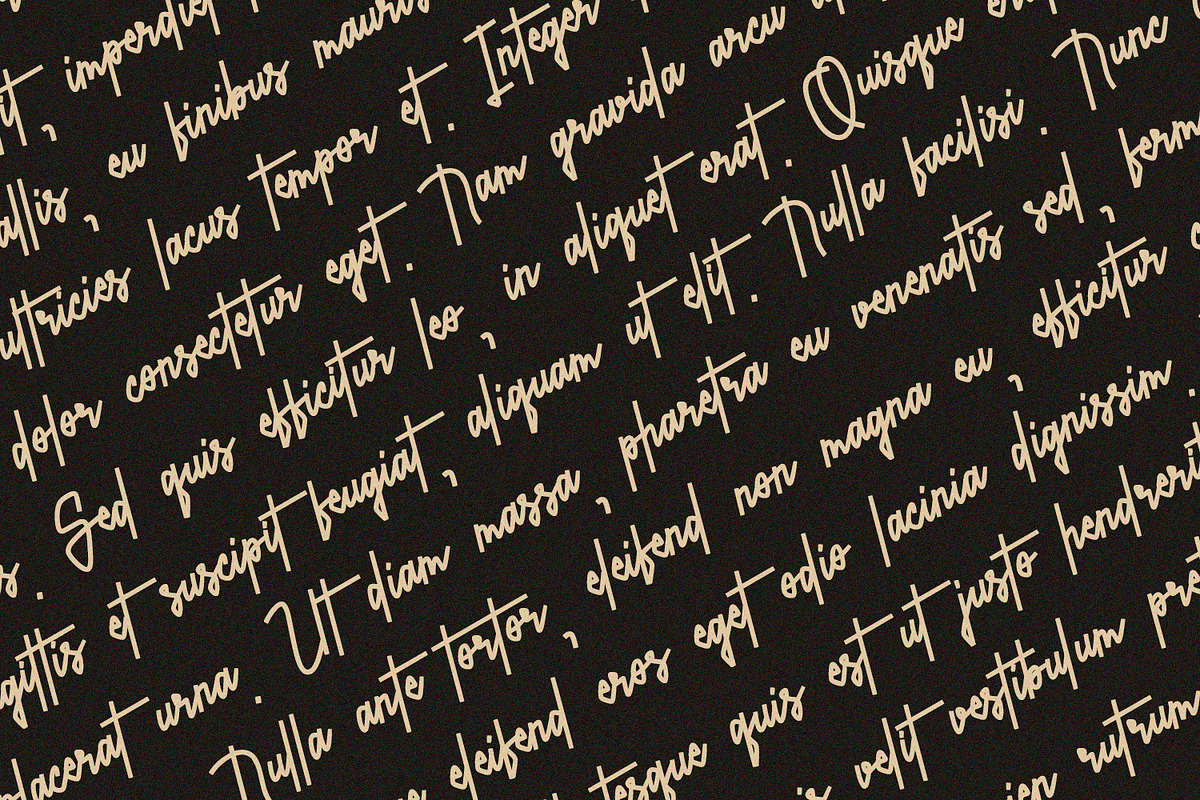 it, imperdiet
allis, eu finibus mauris
ultricies lacus tempor et. Integer
dolor consectetur eget. Nam gravida arcu
s. Sed quis efficitur leo, in aliquet erat. Quisque
gittis et suscipit feugiat, aliquam ut elit. Nulla facilisi. Nunc
placerat urna. Ut diam massa, pharetra eu venenatis sed, ferm
Nulla ante tortor, eleifend non magna eu, efficitur
eleifend eros eget odio lacinia dignissim.
tesque quis est ut justo hendrerit
velit vestibulum pre
ien rutrum